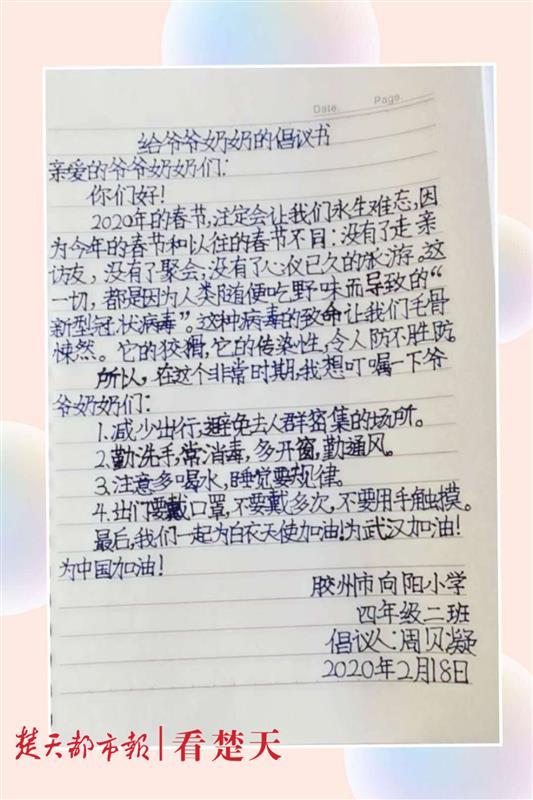 Date.　Page.
给爷爷奶奶的倡议书
亲爱的爷爷奶奶们：
你们好！
2020年的春节，注定会让我们永生难忘，因
为今年的春节和以往的春节不同：没有了走亲
访友，没有了聚会，没有了心仪已久的旅游。这
一切，都是因为人类随便吃野味而导致的“
新型冠状病毒”。这种病毒的致命让我们毛骨
悚然。它的狡猾，它的传染性，令人防不胜防。
所以，在这个非常时期，我想叮嘱一下爷
爷奶奶们：
1.减少出行，避免去人群密集的场所。
2.勤洗手，常消毒，多开窗，勤通风。
3.注意多喝水，睡觉要规律。
4.出门要戴口罩，不要戴多次，不要用手触摸。
最后，我们一起为白衣天使加油！为武汉加油！
为中国加油！
胶州市向阳小学
四年级二班
倡议人：周贝凝
2020年2月18日
楚天都市报|看楚天